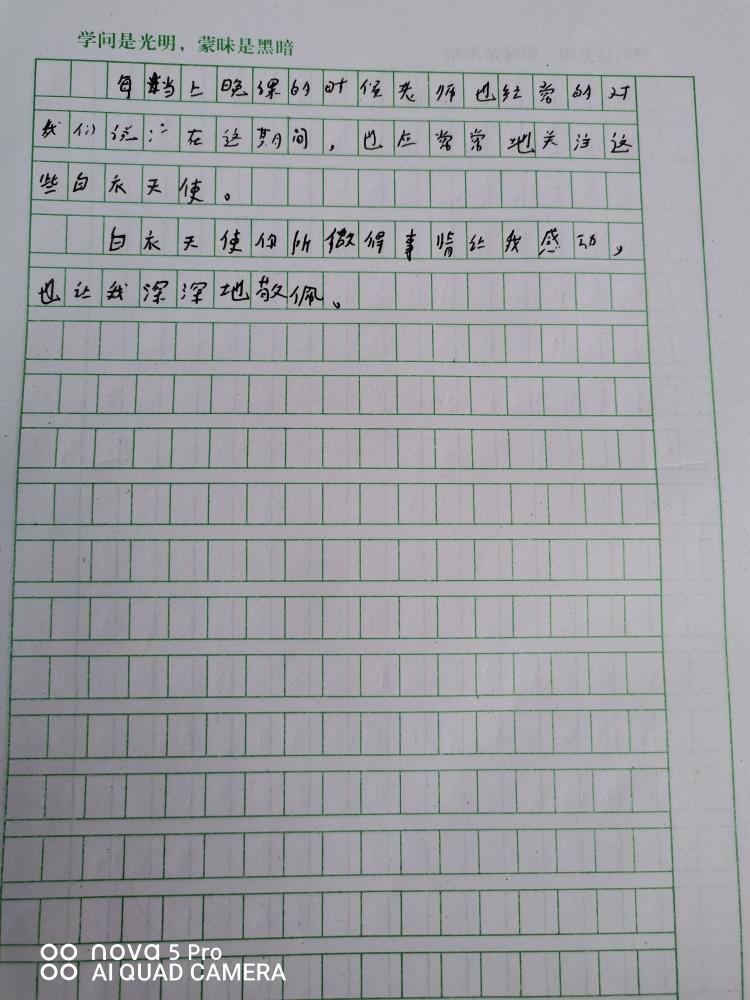 学问是光明，蒙昧是黑暗
每当上晚课的时候老师也经常的对
我们说：在这期间，也应常常地关注这
些白衣天使。
白衣天使们所做得事情让我感动，
也让我深深地敬佩。
nova 5 Pro
AI QUAD CAMERA